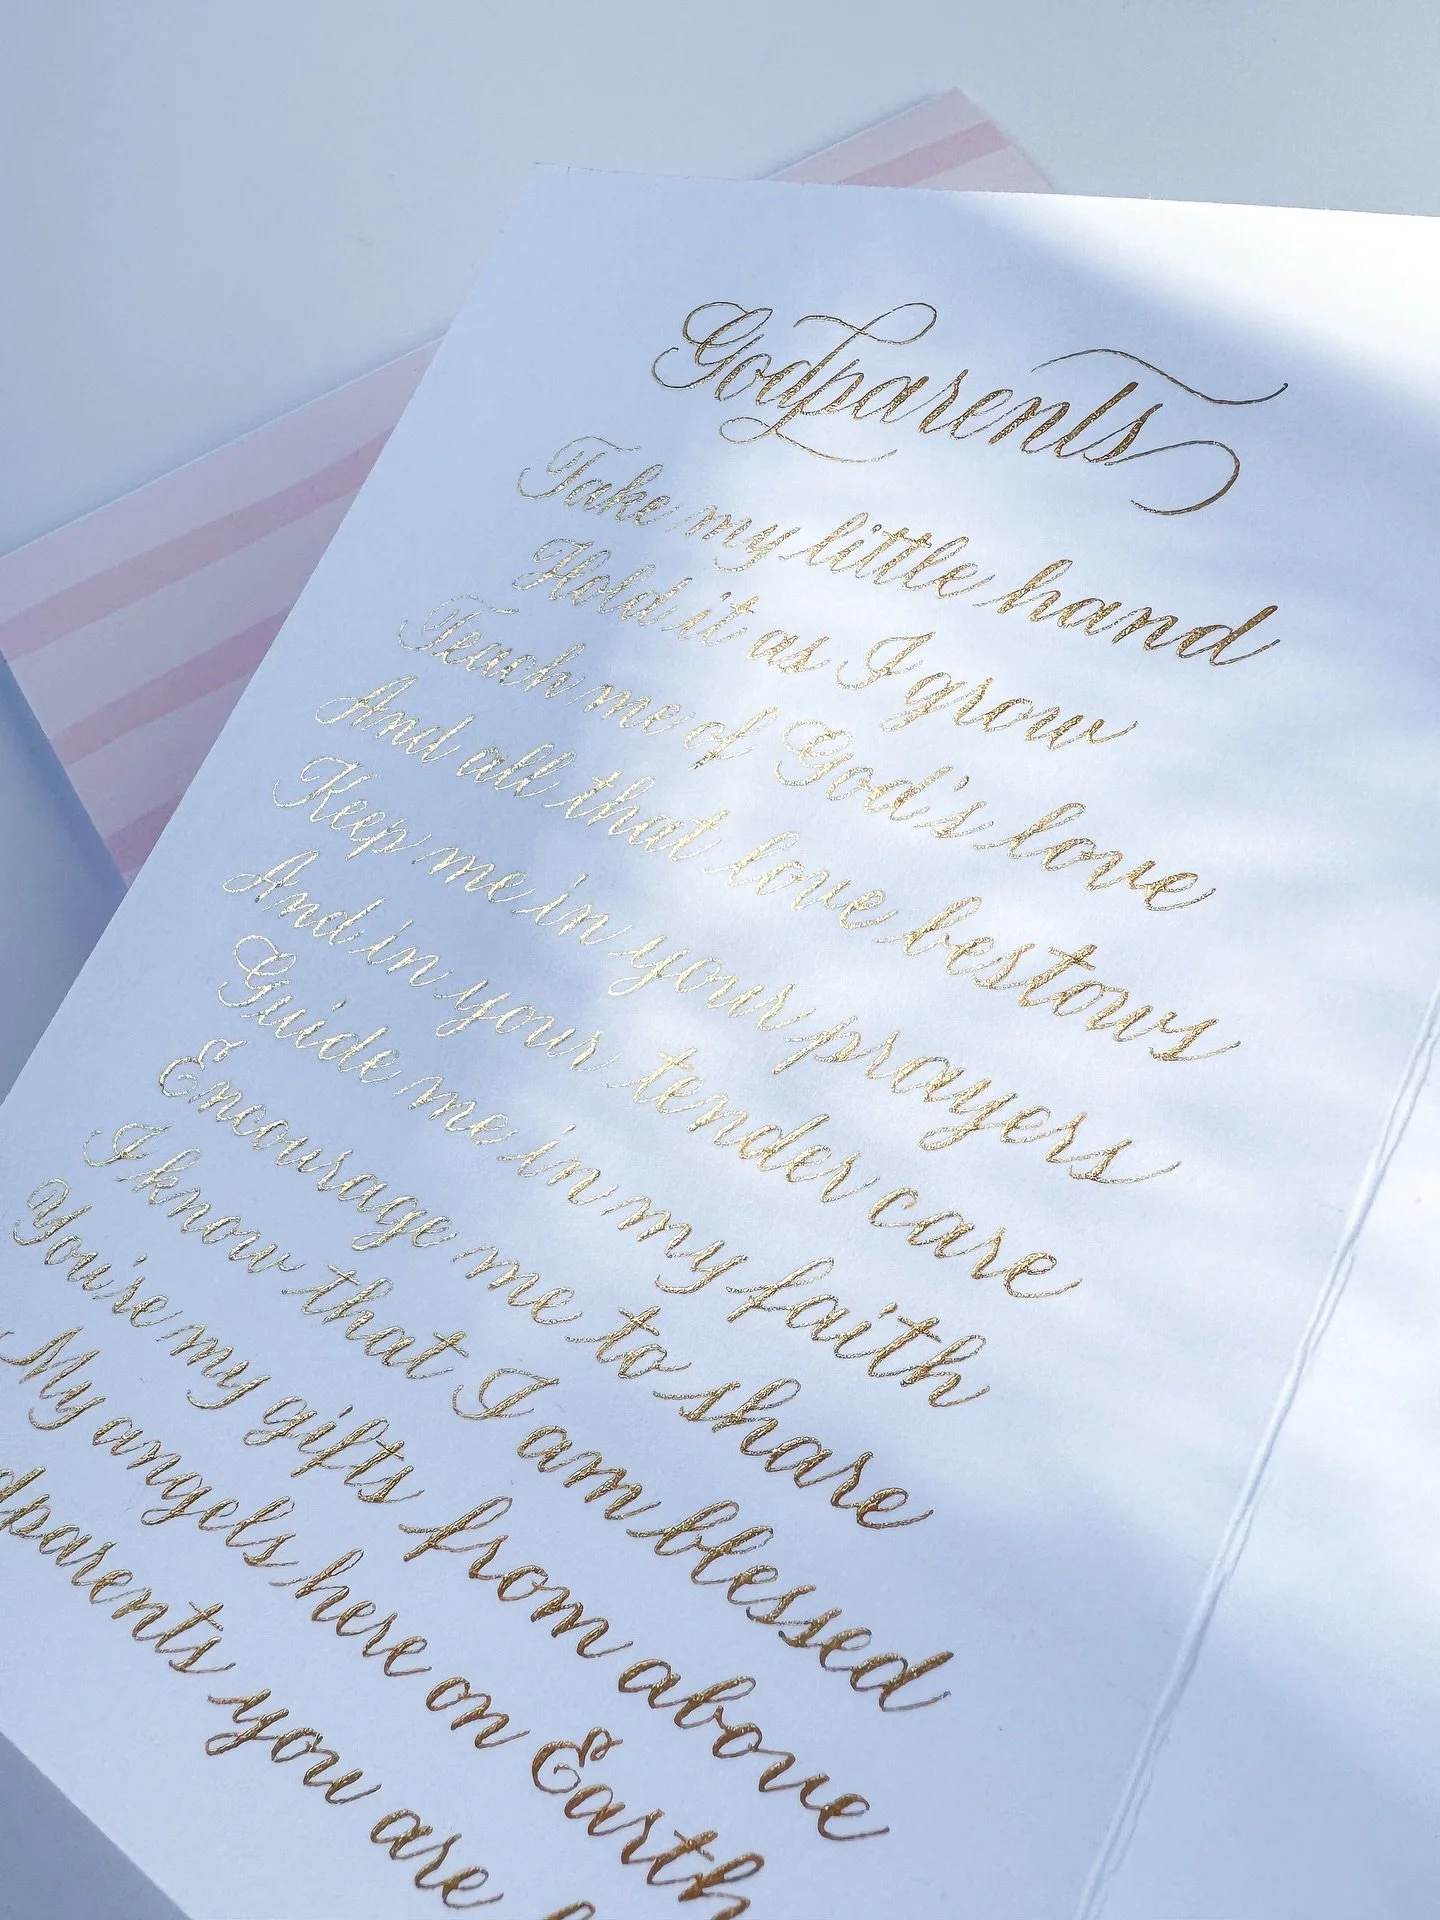 Godparents
Take my little hand
Hold it as I grow
Teach me of God's love
And all that love bestows
Keep me in your prayers
And in your tender care
Guide me in my faith
Encourage me to share
I know that I am blessed
You're my gifts from above
My angels here on Earth
dparents you are